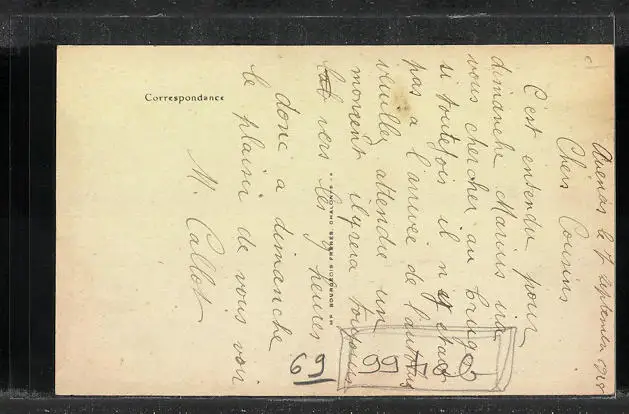 Avenas le 7 Septembre 1958
Chers Cousins
C'est entendu pour
dimanche Marius ira
vous chercher au Bruges
si toutefois il n'y etait
pas a l'arrivée de l'autobus
veuillez attendre un
moment il y sera toujours
vers les 9 heures
donc a dimanche
le plaisir de vous voir
M. Callot
Correspondance
BOURGEOIS FRERES CHALONS S S
69